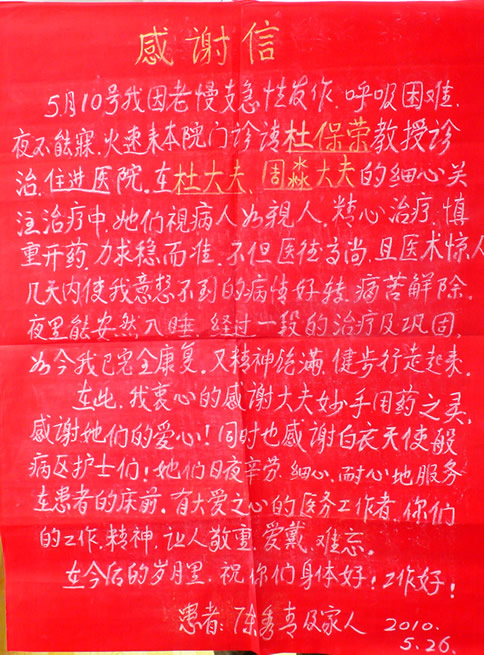 感谢信
5月10号我因老慢支急性发作，呼吸困难，
夜不能寐，火速来本院门诊请杜保荣教授诊
治，住进医院。在杜大夫、周淼大夫的细心关
注治疗中，她们視病人如親人，精心治疗，慎
重开药，力求稳而准，不但医德高尚，且医术惊人
几天内使我意想不到的病情好转，痛苦解除。
夜里能安然入睡，经过一段的治疗及巩固，
如今我已完全康复。又精神饱满，健步行走起来。
在此，我衷心的感谢大夫妙手用药之灵，
感谢她们的爱心！同时也感谢白衣天使般
病区护士们！她们日夜辛劳，细心，耐心地服务
在患者的床前。有大爱之心的医务工作者，你们
的工作，精神，让人敬重，爱戴，难忘。
在今后的岁月里，祝你们身体好！工作好！
患者：陈秀青及家人 2010.
5.26.